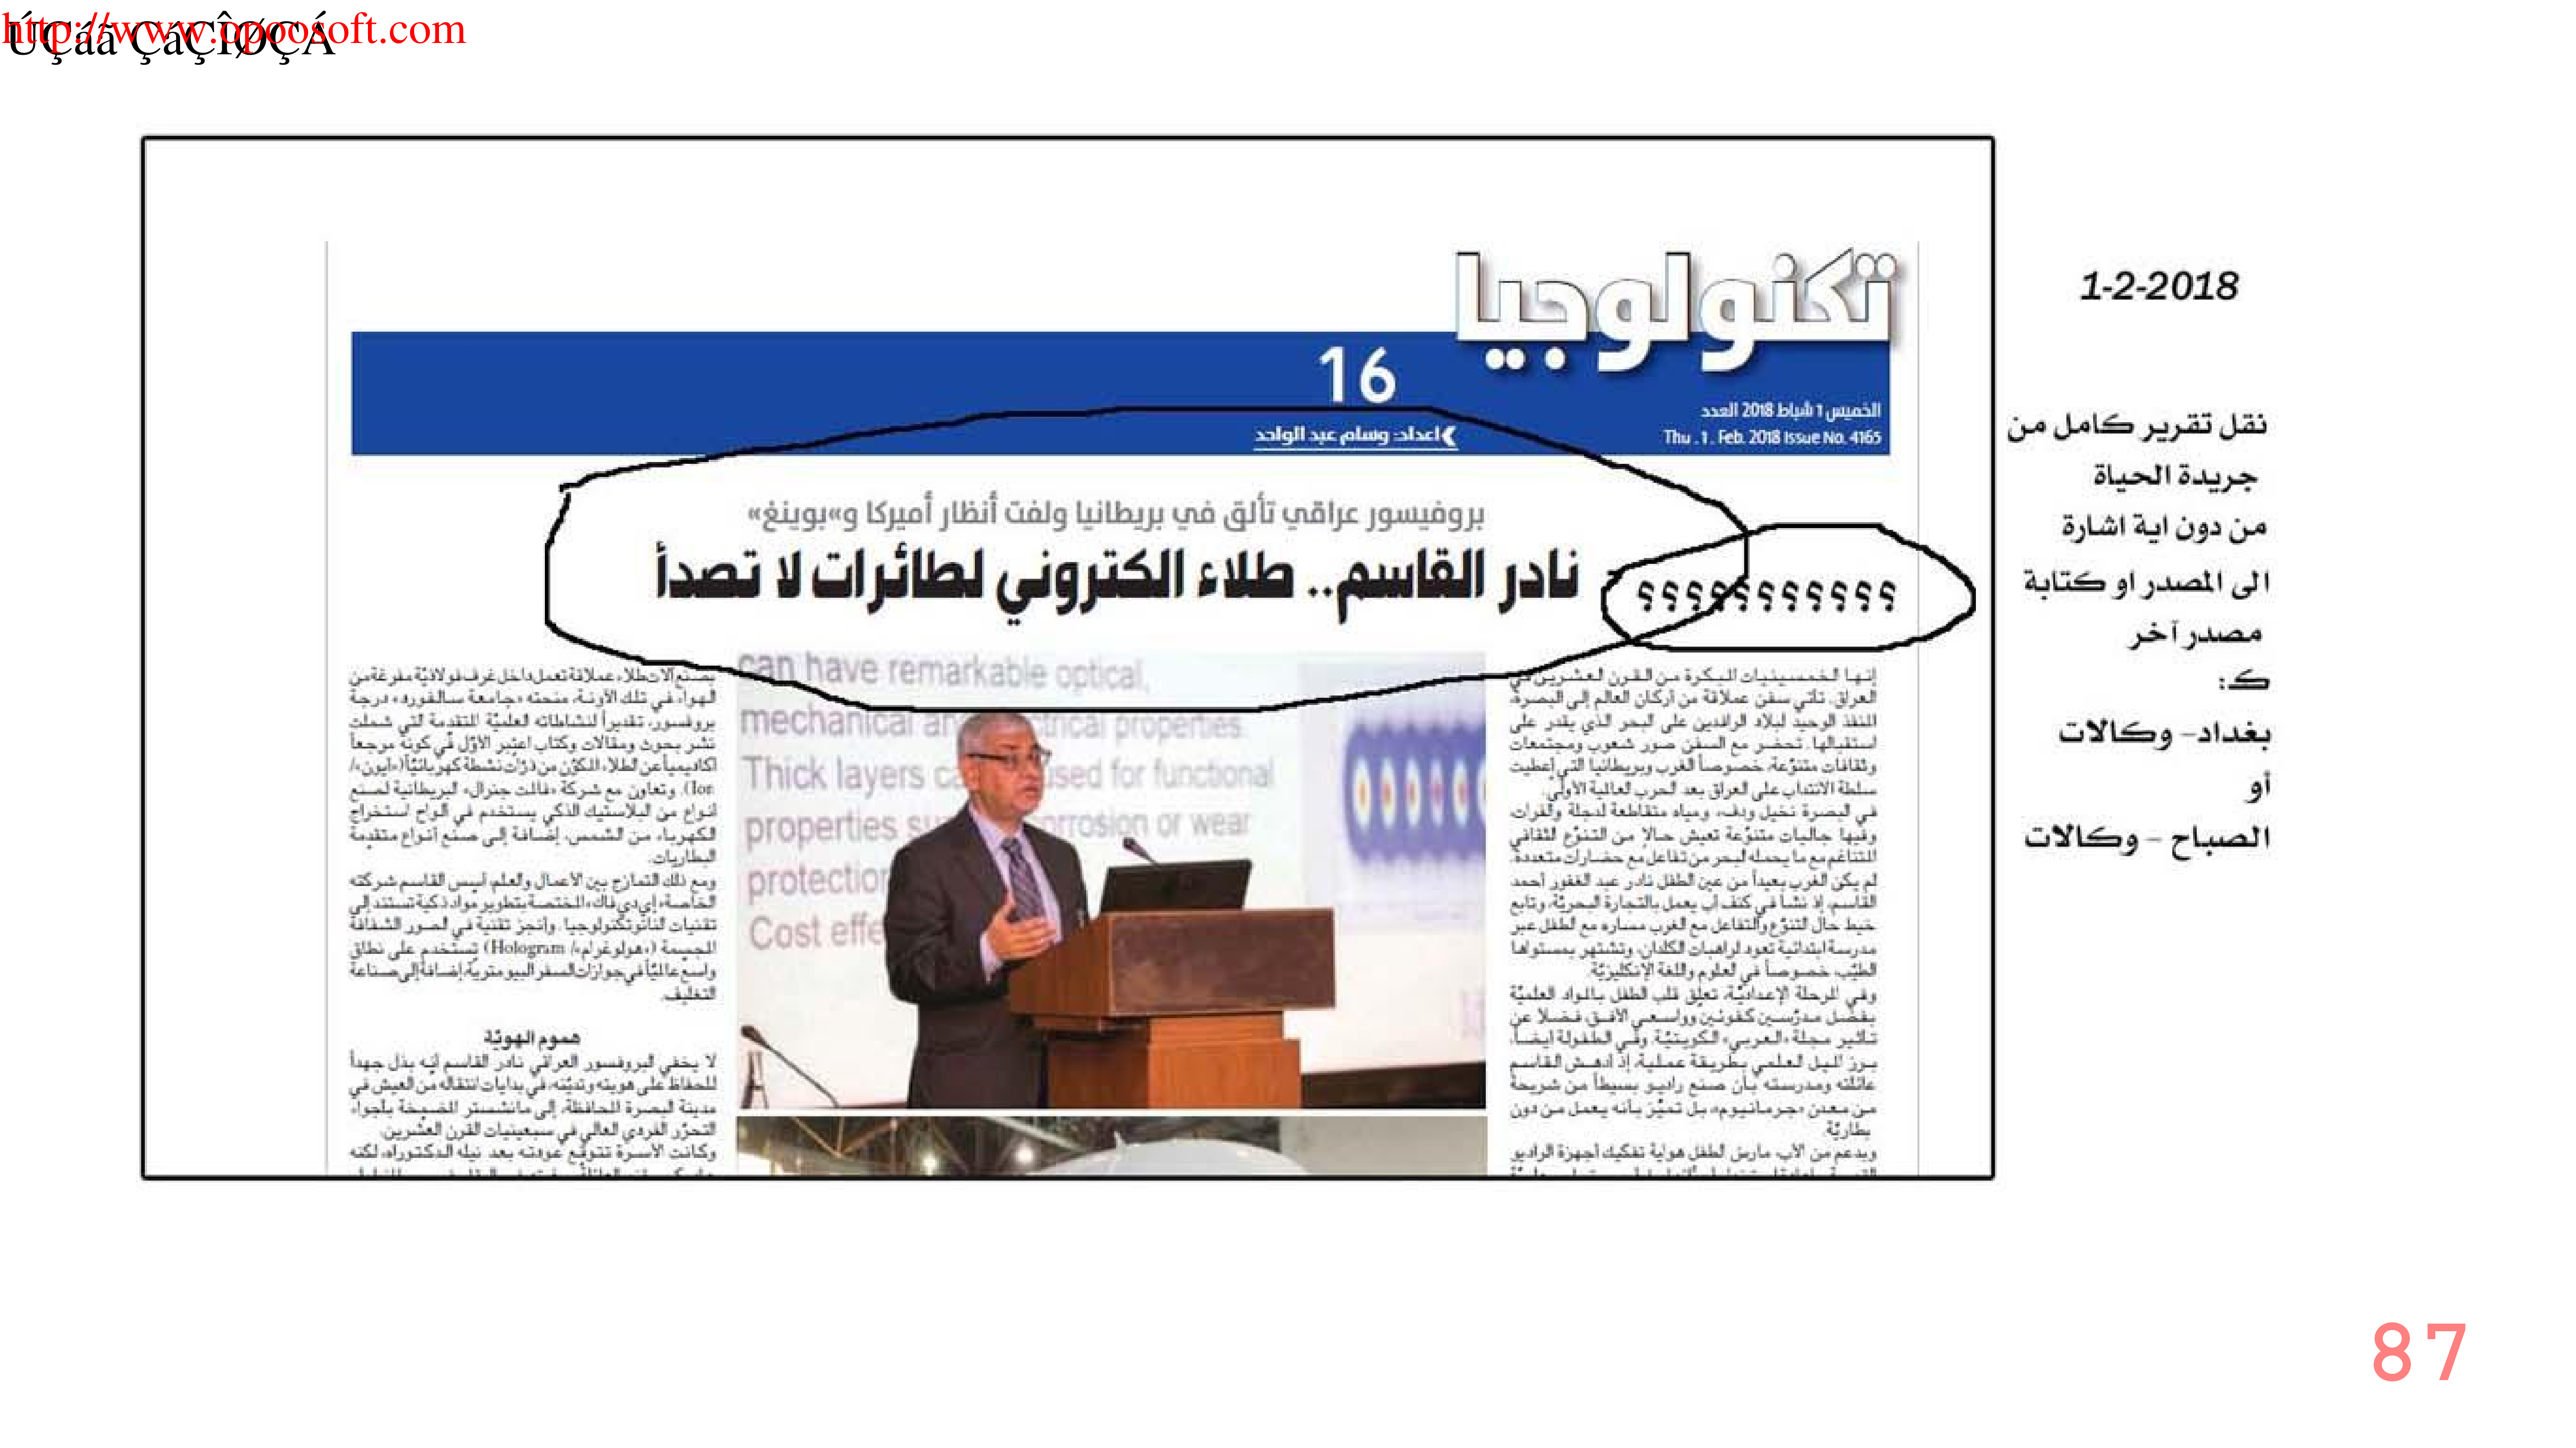 http://www.opoosoft.com
ÚÇáã ÇáÇÎØÇÁ
تكنولوجيا
16
الخميس 1 شباط 2018 العدد
Thu .1. Feb. 2018 Issue No. 4165
اعداد: وسام عبد الواحد
بروفيسور عراقي تألق في بريطانيا ولفت أنظار أميركا و»بوينغ»
نادر القاسم.. طلاء الكتروني لطائرات لا تصدأ
؟؟؟؟؟؟؟؟؟؟؟
إنها الخمسينيات المبكرة من القرن العشرين في
العراق. تأتي سفن عملاقة من أركان العالم إلى البصرة،
المنفذ الوحيد لبلاد الرافدين على البحر الذي يقدر على
استقبالها. تحضر مع السفن صور شعوب ومجتمعات
وثقافات متنوّعة، خصوصاً الغرب وبريطانيا التي أعطيت
سلطة الانتداب على العراق بعد الحرب العالمية الأولى.
في البصرة نخيل ودفء ومياه متقاطعة لدجلة والفرات،
وفيها جاليات متنوّعة تعيش حالاً من التنوّع الثقافي
المتناغم مع ما يحمله البحر من تفاعل مع حضارات متعددة.
لم يكن الغرب بعيداً من عين الطفل نادر عبد الغفور أحمد
القاسم، إذ نشأ في كنف أب يعمل بالتجارة البحريّة، وتابع
خيط حال التنوّع والتفاعل مع الغرب مساره مع الطفل عبر
مدرسة ابتدائية تعود لراهبات الكلدان، وتشتهر بمستواها
الطيّب، خصوصاً في العلوم واللغة الإنكليزيّة.
وفي المرحلة الإعداديّة، تعلق قلب الطفل بالمواد العلميّة
بفضل مدرّسين كفوئين وواسعي الأفق فضلاً عن
تأثير مجلة «العربي» الكويتيّة. وفي الطفولة أيضاً،
برز الميل العلمي بطريقة عملية، إذ أدهش القاسم
عائلته ومدرسته بأن صنع راديو بسيطاً من شريحة
من معدن «جرمانيوم» بل تميّز بأنه يعمل من دون
بطاريّة.
وبدعم من الأب، مارس الطفل هواية تفكيك أجهزة الراديو
can have remarkable optical,
mechanical an ctrical properties.
Thick layers ca used for functional
properties su orrosion or wear
protection
Cost effe
بصنع آلات طلاء عملاقة تعمل داخل غرف فولاذيّة مفرغة من
الهواء. في تلك الآونة، منحته «جامعة سالفورد» درجة
بروفسور، تقديراً لنشاطاته العلميّة المتقدمة التي شملت
نشر بحوث ومقالات وكتاب اعتبر الأوّل في كونه مرجعاً
أكاديمياً عن الطلاء المكوّن من ذرّات نشطة كهربائيّاً («أيون»/
Ion). وتعاون مع شركة «فالت جنرال» البريطانية لصنع
أنواع من البلاستيك الذكي يستخدم في ألواح استخراج
الكهرباء من الشمس، إضافة إلى صنع أنواع متقدمة
البطاريات.
ومع ذلك التمازج بين الأعمال والعلم، أسس القاسم شركته
الخاصة «إي دي فاك» المختصة بتطوير مواد ذكية تستند إلى
تقنيات النانوتكنولوجيا. وأنجز تقنية في الصور الشفافة
المجسمة («هولوغرام»/ Hologram) تستخدم على نطاق
واسع عالميّاً في جوازات السفر البيومترية إضافة إلى صناعة
التغليف.
هموم الهويّة
لا يخفي البروفسور العراقي نادر القاسم أنه بذل جهداً
للحفاظ على هويته وتديّنه، في بدايات انتقاله من العيش في
مدينة البصرة المحافظة، إلى مانشستر المضمخة بأجواء
التحرّر الفردي العالي في سبعينيات القرن العشرين.
وكانت الأسرة تتوقع عودته بعد نيله الدكتوراه، لكنه
1-2-2018
نقل تقرير كامل من
جريدة الحياة
من دون اية اشارة
الى المصدر او كتابة
مصدر آخر
ك:
بغداد- وكالات
أو
الصباح - وكالات
87